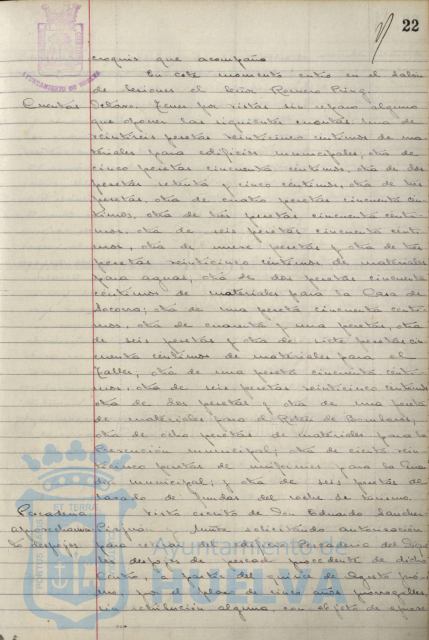 22
croquis que acompaño
En este momento entró en el salón
de sesiones el señor Romero Pérez.
Cuentas
Tener por vistas sin reparo alguno
que oponer las siguientes cuentas: una de
veintiseis pesetas veinticinco céntimos de ma-
teriales para edificios municipales; otra de
cinco pesetas cincuenta céntimos, otra de dos
pesetas setenta y cinco céntimos, otra de tres
pesetas, otra de cuatro pesetas cincuenta cén-
timos, otra de tres pesetas cincuenta cénti-
mos, otra de seis pesetas cincuenta cénti-
mos, otra de nueve pesetas y otra de tres
pesetas veinticinco céntimos de materiales
para aguas; otra de dos pesetas cincuenta
céntimos de materiales para la Casa de
Socorro; otra de una peseta cincuenta cénti-
mos, otra de cuarenta y una pesetas, otra
de seis pesetas y otra de siete pesetas cin-
cuenta céntimos de materiales para el
Taller; otra de una peseta cincuenta cénti-
mos, otra de seis pesetas veinticinco céntimos
otra de dos pesetas y otra de una peseta
de materiales para el Retén de Bomberos;
otra de ocho pesetas de materiales para la
municipal; otra de ciento vein-
ticinco pesetas de uniformes para la Gua-
municipal; y otra de seis pesetas del
lavado de fundas del coche de turismo.
Pescadería
Visto escrito de Don Eduardo Sánchez
aprovechamien-
solicitando autorización
to despojos
para retirar del edificio Pescadería del
los despojos de pescado procedente de dicho
Centro, a partir del quince de Agosto próxi-
mo, por el plazo de cinco años prorrogables,
sin retribución alguna, con objeto de aprove-
Ayuntamiento de
HUELVA